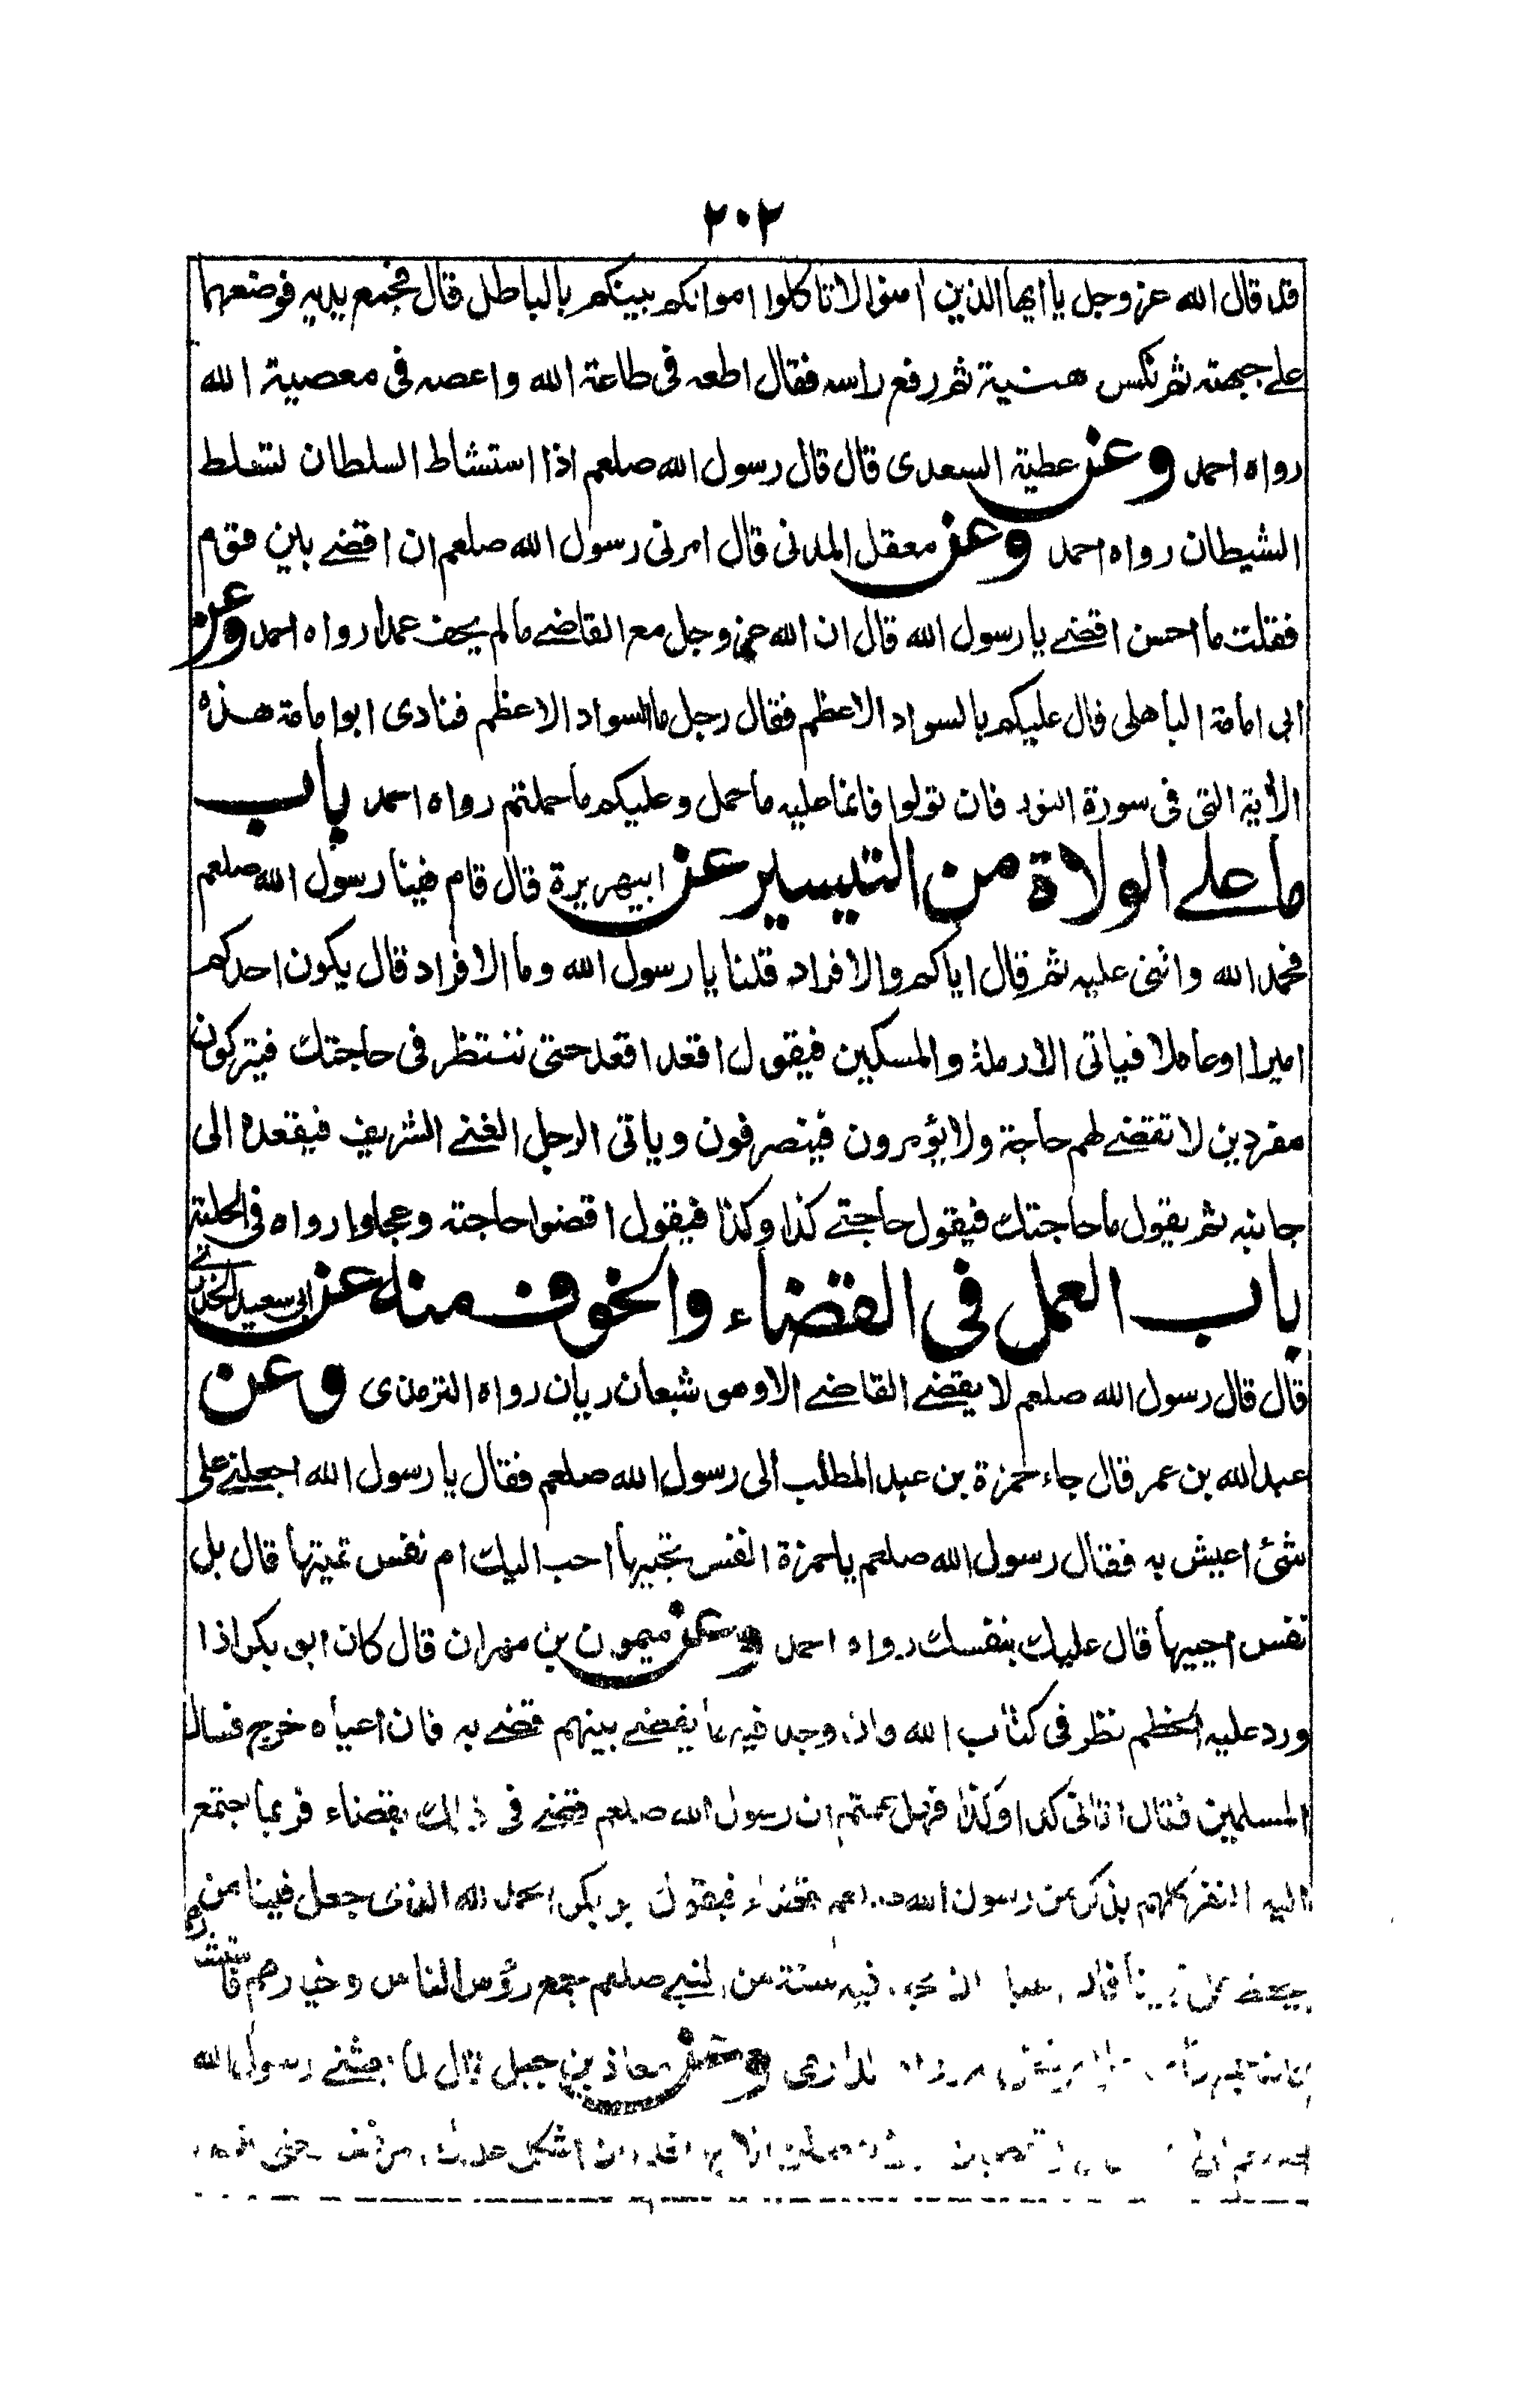 ٢٠٢
قد قال الله عز وجل يا ايها الذين امنوا لا تاكلوا اموالكم بينكم بالباطل قال فجمع يديه فوضعهما
على جبهته ثم نكس هنية ثم رفع راسه فقال اطعه فى طاعة الله واعصه فى معصية الله
رواه احمد وعن عطية السعدى قال قال رسول الله صلعم اذا استشاط السلطان تسلط
الشيطان رواه احمد وعن معقل المدنى قال امرنى رسول الله صلعم ان اقضے بين قوم
فقلت ما احسن اقضے يا رسول الله قال ان الله عز وجل مع القاضے ما لم يحف عمدا رواه احمد وعن
ابى امامة الباهلى قال عليكم بالسواد الاعظم فقال رجل ما السواد الاعظم فنادى ابو امامة هذه
الأية التى فى سورة النور فان تولوا فانما عليه ما حمل وعليكم ما حملتم رواه احمد باب
ما على الولاة من التيسير عن ابيهريرة قال قام فينا رسول الله صلعم
فحمد الله واثنى عليه ثم قال اياكم والافراد قلنا يا رسول الله وما الافراد قال يكون احدكم
اميرا او عاملا فياتى الارملة والمسكين فيقول اقعد اقعد حتى ننتظر فى حاجتك فيتركون
مفردين لا تقضے لهم حاجة ولا يؤمرون فينصرفون وياتى الرجل الغنے الشريف فيقعده الى
جانبه ثم يقول ما حاجتك فيقول حاجتے كذا وكذا فيقول اقضوا حاجته وعجلوا رواه فى الحلية
باب العمل فى القضاء والخوف منه عن ابى سعيد الخدرى
قال قال رسول الله صلعم لا يقضے القاضے الا وهو شبعان ريان رواه الترمذى وعن
عبد الله بن عمر قال جاء حمزة بن عبد المطلب الى رسول الله صلعم فقال يا رسول الله اجعلنے على
شئ اعيش به فقال رسول الله صلعم يا حمزة انفس تحييها احب اليك ام نفس تميتها قال بل
نفس احييها قال عليك بنفسك رواه احمد وعن ميمون بن مهران قال كان ابو بكر اذا
ورد عليه الخصم نظر فى كتاب الله وان وجد فيه ما يقضے بينهم قضے به فان اعياه خرج فسال
المسلمين فقال اتانى كذا وكذا فهل علمتم ان رسول الله صلعم قضے فى ذلك بقضاء فربما اجتمع
اليه النفر كلهم يذكر من رسول الله قضاء فيقول ابو بكر الحمد لله الذى جعل فينا من
يحفظ نبينا فان فيه سنة من النبے صلعم جمع رؤس الناس وخيارهم
رواه الدارمى وعن معاذ بن جبل قال لما بعثنے رسول الله
ان اشكل عليك